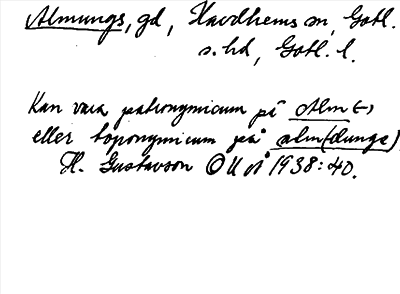 Almungs, gd, Havdhems sn, Gotl.
s. hd, Gotl. l.
Kan vara patronymicum på Alm(-)
eller toponymicum på alm(dunge)
H. Gustavson OUÅ 1938:40.